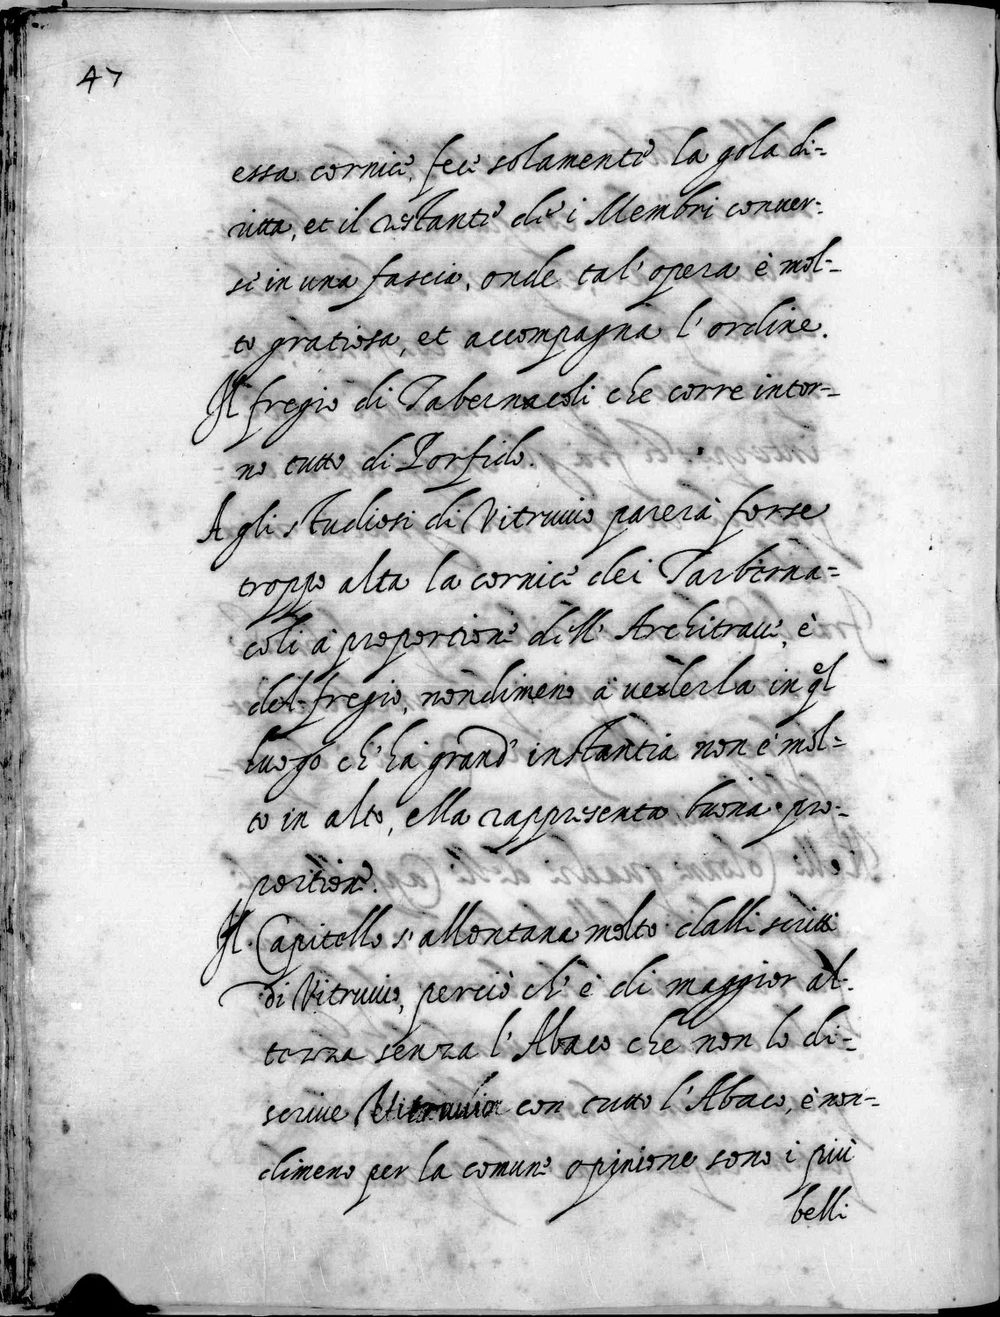 47
essa cornice, fece solamente la gola di=
ritta, et il restante de i Membri conuer=
se in una fascia, onde tal' opera è mol=
to gratiosa, et accompagna l' ordine.
Il fregio di Tabernacoli che corre intor=
no tutto di Porfido.
A gli studiosi di Vitruuio parerà forse
troppo alta la cornice dei Tarberna=
coli a proportione dell' Architraue, è
del fregio, nondimeno a uederla in ql
luogo ch' hà grand' instantia non è mol=
to in alto, ella rappresenta buona pro=
portione.
Il Capitello s' allontana molto dalli scritti
di Vitruuio, perciò ch' è di maggior al=
tezza senza l' Abaco che non lo di=
scriue Vitruuio con tutto l' Abaco, è non=
dimeno per la comune opinione sono i più
belli